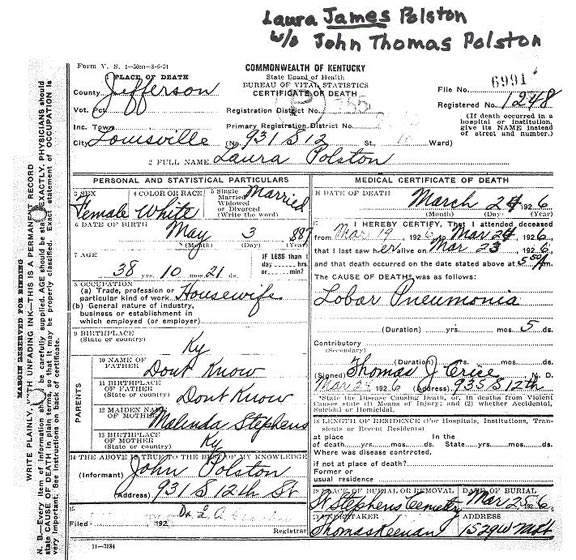 Laura James Polston
w/o John Thomas Polston
Form V. S. 1-50m-8-6-21
COMMONWEALTH OF KENTUCKY
State Board of Health
BUREAU OF VITAL STATISTICS
CERTIFICATE OF DEATH
6991
File No.
Registered No. 1248
(If death occurred in a hospital or institution, give its NAME instead of street and number.)
1 PLACE OF DEATH
County Jefferson
Vot. Pct.
Registration District No.
Inc. Town
Primary Registration District No.
City Louisville (No. 931 S 12 St., Ward)
2 FULL NAME Laura Polston
PERSONAL AND STATISTICAL PARTICULARS
3 SEX Female
4 COLOR OR RACE White
5 Single Married Widowed or Divorced (Write the word) Married
6 DATE OF BIRTH May 3 887
(Month) (Day) (Year)
7 AGE 38 yrs. 10 mos. 21 ds.
IF LESS than 1 day hrs. or min?
8 OCCUPATION
(a) Trade, profession or particular kind of work Housewife
(b) General nature of industry, business or establishment in which employed (or employer)
9 BIRTHPLACE
(State or country) Ky
PARENTS
10 NAME OF FATHER Dont Know
11 BIRTHPLACE OF FATHER
(State or country) Dont Know
12 MAIDEN NAME OF MOTHER Malinda Stephens
13 BIRTHPLACE OF MOTHER
(State or country) Ky
14 THE ABOVE IS TRUE TO THE BEST OF MY KNOWLEDGE
(Informant) John Polston
(Address) 931 S 12th St
15
Filed 192
Registrar
11-3184
MEDICAL CERTIFICATE OF DEATH
16 DATE OF DEATH March 24 1926
(Month) (Day) (Year)
17 I HEREBY CERTIFY, That I attended deceased
from Mar 19 1926 Mar 24 1926
that I last saw her alive on Mar 23 1926
and that death occurred on the date stated above at
The CAUSE OF DEATH was as follows:
Lobar Pneumonia
(Duration) yrs. mos. 5 ds.
Contributory
(Secondary)
(Duration) yrs. mos. ds.
(Signed) Thomas J M. D.
Mar 24 1926 (Address) 935 S 12th
*State the Disease Causing Death, or, in deaths from Violent Causes state (1) Means of Injury; and (2) whether Accidental, Suicidal or Homicidal.
18 LENGTH OF RESIDENCE (For Hospitals, Institutions, Transients or Recent Residents)
At place of death yrs. mos. ds. In the State yrs. mos. ds.
Where was disease contracted,
if not at place of death?
Former or usual residence
19 PLACE OF BURIAL OR REMOVAL St Stephens Cemetery
DATE OF BURIAL Mar 25 26
20 UNDERTAKER Thomas Keenan
1529 W
MARGIN RESERVED FOR BINDING
WRITE PLAINLY, WITH UNFADING INK—THIS IS A PERMANENT RECORD
N. B.—Every item of information should be carefully supplied. AGE should be stated EXACTLY. PHYSICIANS should state CAUSE OF DEATH in plain terms, so that it may be properly classified. Exact statement of OCCUPATION is very important. See instructions on back of certificate.